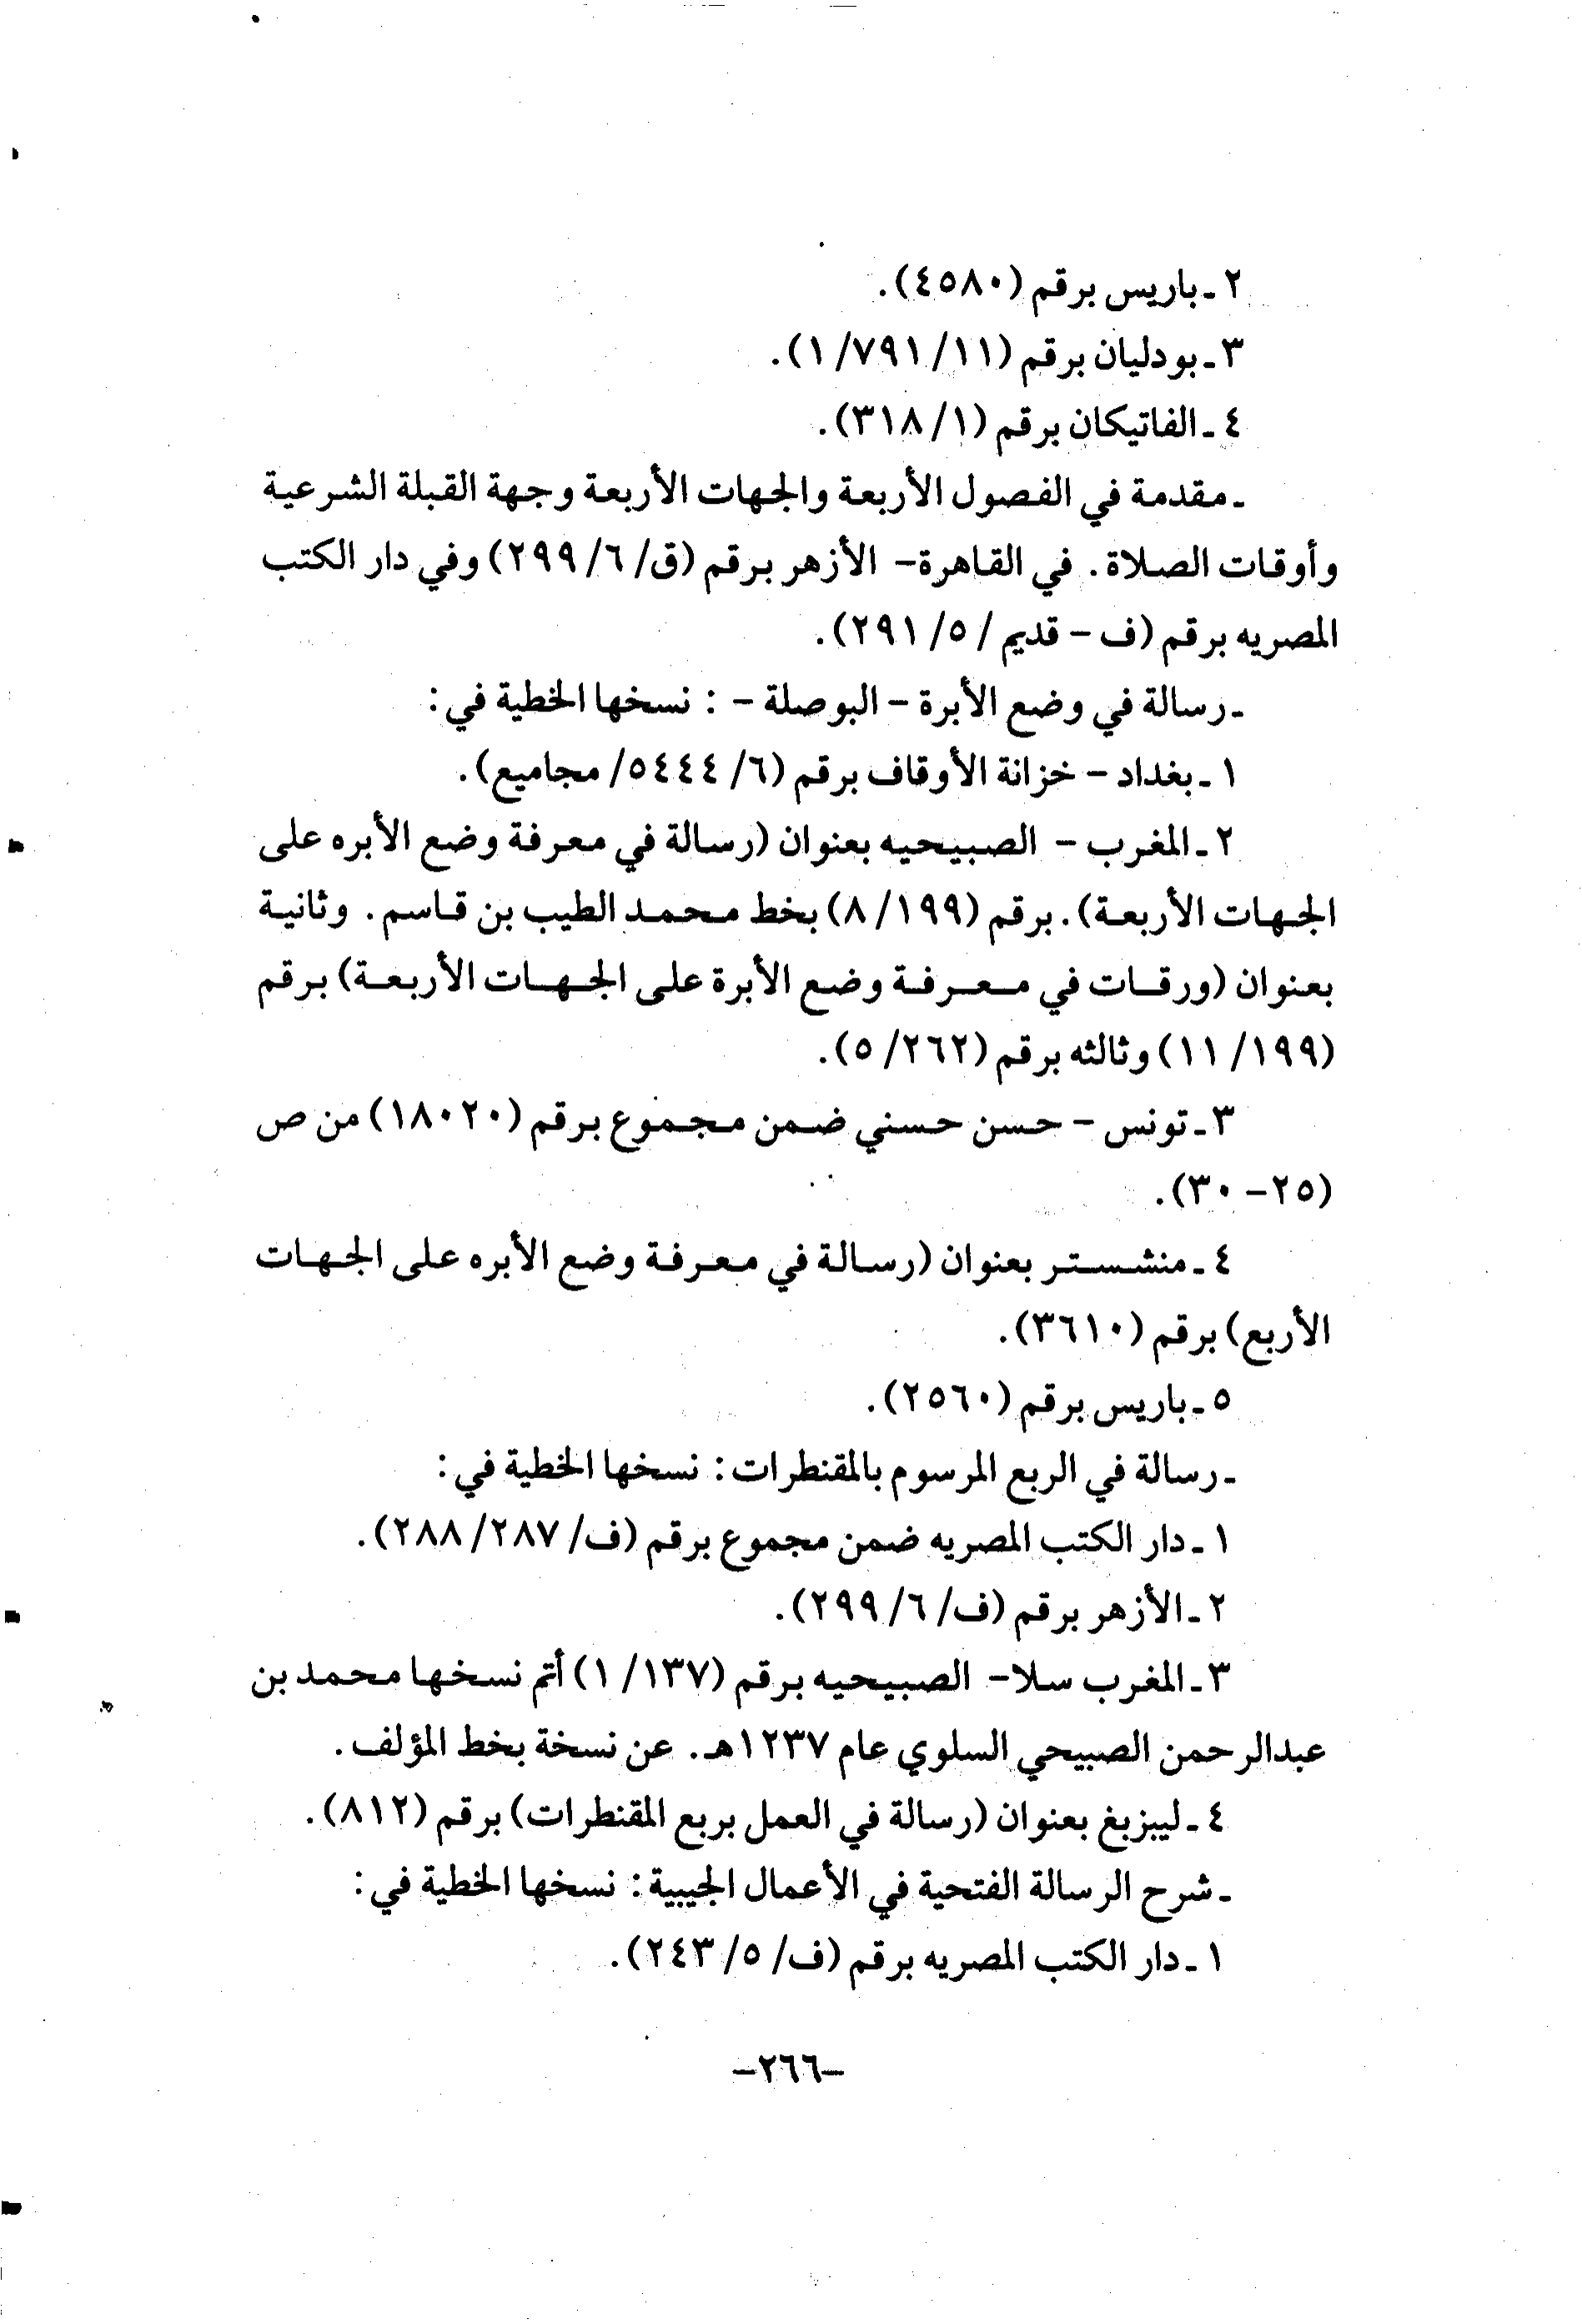 ٢ ـ باريس برقم (٤٥٨٠).
٣ ـ بودليان برقم (١١/ ٧٩١/ ١).
٤ ـ الفاتيكان برقم (١/ ٣١٨).
ـ مقدمة في الفصول الأربعة والجهات الأربعة وجهة القبلة الشرعية
وأوقات الصلاة. في القاهرة– الأزهر برقم (ق/ ٦/ ٢٩٩) وفي دار الكتب
المصريه برقم (ف – قديم / ٥/ ٢٩١).
ـ رسالة في وضع الأبرة – البوصلة – : نسخها الخطية في:
١ ـ بغداد – خزانة الأوقاف برقم (٦/ ٥٤٤٤/ مجاميع).
٢ ـ المغرب – الصبيحيه بعنوان (رسالة في معرفة وضع الأبره على
الجهات الأربعة). برقم (١٩٩/ ٨) بخط محمد الطيب بن قاسم. وثانية
بعنوان (ورقات في معرفة وضع الأبرة على الجهات الأربعة) برقم
(١٩٩/ ١١) وثالثه برقم (٢٦٢/ ٥).
٣ ـ تونس – حسن حسني ضمن مجموع برقم (١٨٠٢٠) من ص
(٢٥– ٣٠).
٤ ـ منشستر بعنوان (رسالة في معرفة وضع الأبره على الجهات
الأربع) برقم (٣٦١٠).
٥ ـ باريس برقم (٢٥٦٠).
ـ رسالة في الربع المرسوم بالمقنطرات: نسخها الخطية في:
١ ـ دار الكتب المصريه ضمن مجموع برقم (ف/ ٢٨٧/ ٢٨٨).
٢ ـ الأزهر برقم (ف/ ٦/ ٢٩٩).
٣ ـ المغرب سلا– الصبيحيه برقم (١٣٧/ ١) أتم نسخها محمد بن
عبدالرحمن الصبيحي السلوي عام ١٢٣٧هـ. عن نسخة بخط المؤلف.
٤ ـ ليبزيغ بعنوان (رسالة في العمل بربع المقنطرات) برقم (٨١٢).
ـ شرح الرسالة الفتحية في الأعمال الجيبية: نسخها الخطية في:
١ ـ دار الكتب المصريه برقم (ف/ ٥/ ٢٤٣).
–٢٦٦–